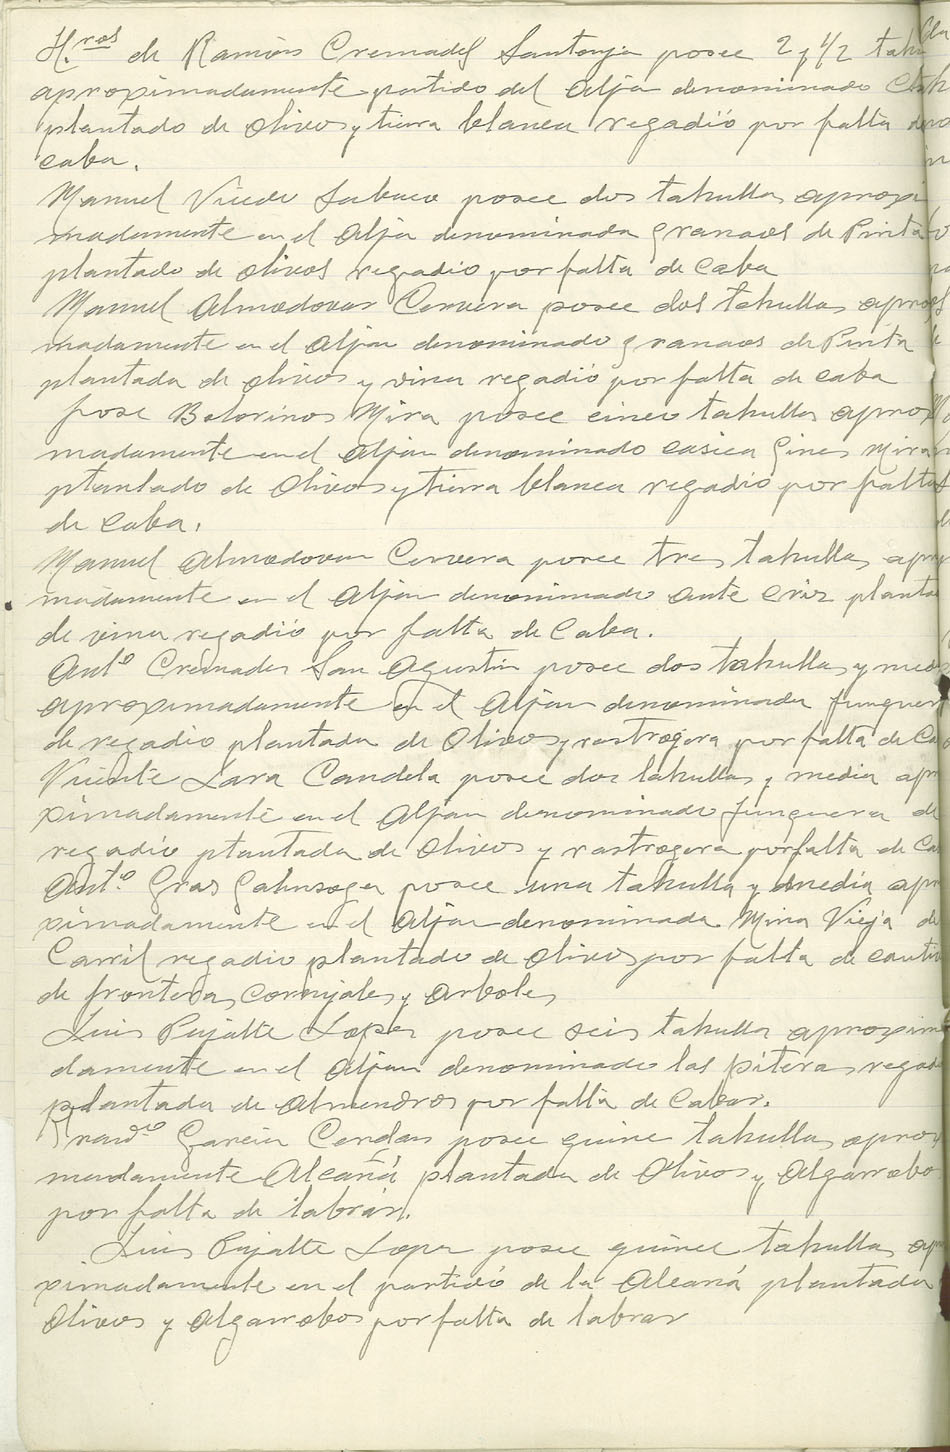 H.ros de Ramón Cremades Santonja posee 2 y 1/2 tahu
aproximadamente partido del Aljau denominado
plantado de olivos y tierra blanca regadió por falta de
caba.
Manuel Vicedo posee dos tahullas aproxi
madamente en el Aljau denominada granaes de Pinta
plantado de olivos regadio por falta de Caba
Manuel Almodovar Cervera posee dos tahullas aproxi
madamente en el Aljau denominado granaos de Pinta
plantada de olivos y vina regadió por falta de caba
Jose Botorinos Mira posee cinco tahullas aprox
madamente en el Aljau denominado casica Gines Mira
plantado de Olivos y tierra blanca regadio por falta
de caba.
Manuel Almodovar Cervera posee tres tahullas apro
madamente en el Aljau denominado ante criz planta
de vina regadió por falta de Caba.
Antº Cremades San Agustin posee dos tahullas y med
aproximadamente en el Aljau denominada Junquer
de regadio plantada de Olivos y rastrogera por falta de Ca
Vicente Lara Candela posee dos tahullas y media apr
ximadamente en el Aljau denominado Junquera de
regadio plantada de Olivos y rastrogera por falta de Ca
Antº. Gras posee una tahulla y media apr
ximadamente en el Aljau denominada Mina Vieja de
Carril regadio plantado de Olivos por falta de
de fronteras, Cornijales y Arboles
Luis Pujalte Lopez posee seis tahullas aproxima
damente en el Aljau denominado las piteras regad
plantada de Almendros por falta de Cabar.
Franco Garcia Cerdan posee quince tahullas aprox
mandamente Alcaná plantada de Olivos y Algarrobo
por falta de labrar.
Luis Pujalte Lopez posee quince tahullas ap
ximadamente en el partidó de la Alcaná plantada
Olivos y Algarrobos por falta de labrar